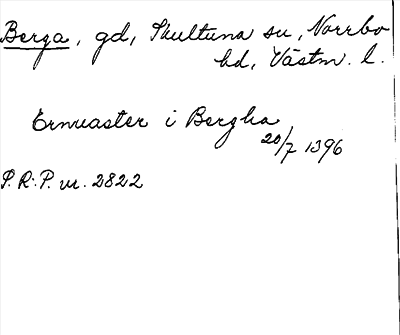 Berga, gd, Skultuna sn, Norrbo
hd, Västm. l.
Ernuaster i Bergha
20/7 1396
S.R:P. nr. 2822